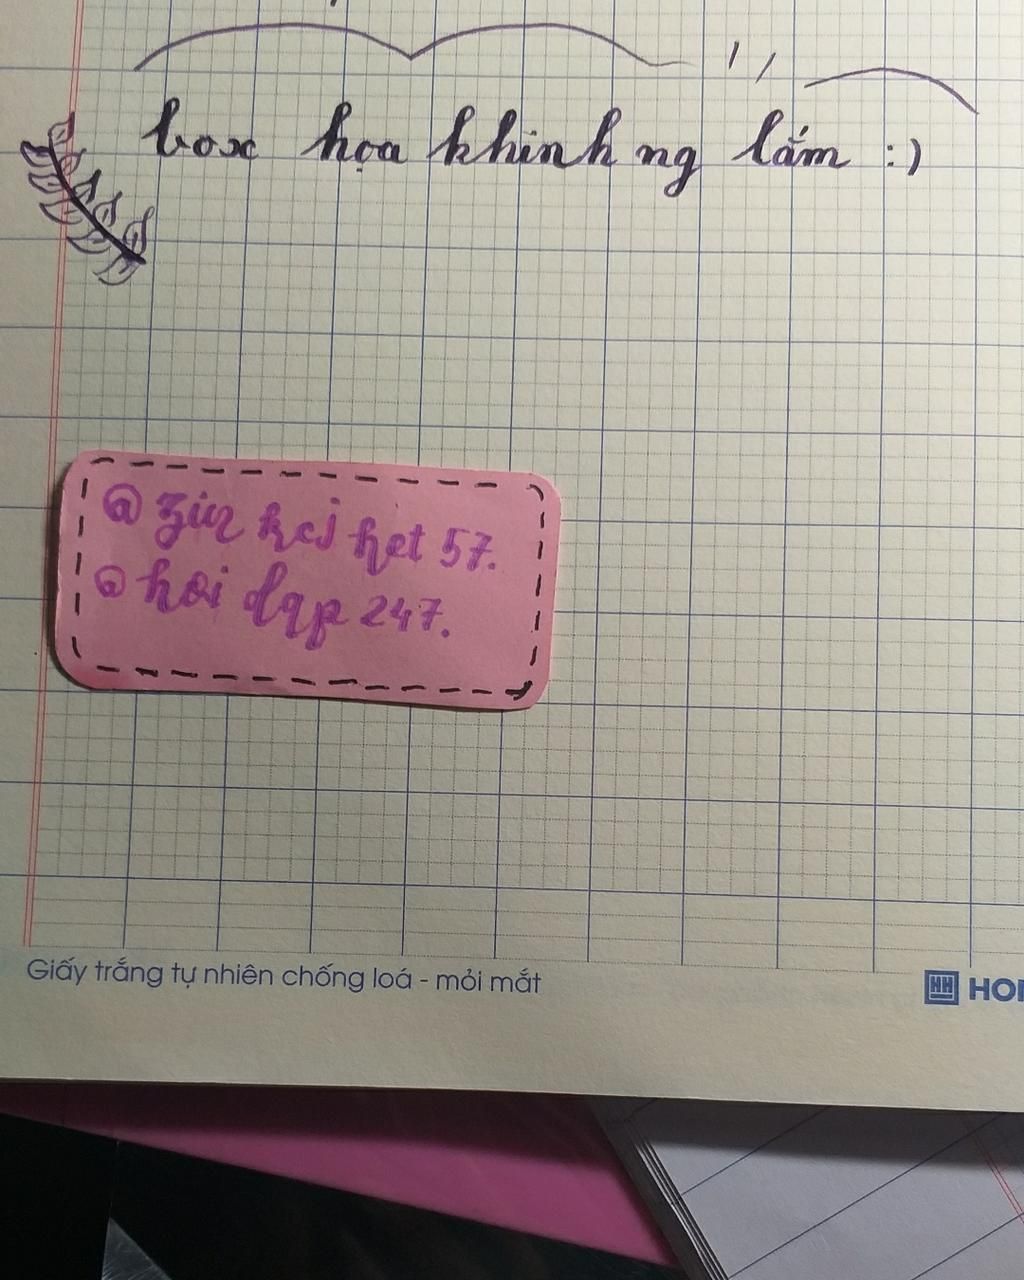 box họa khinh ng lắm :)
@ zin kcj het 57.
@ hoi dap 247.
Giấy trắng tự nhiên chống loá - mỏi mắt
HH